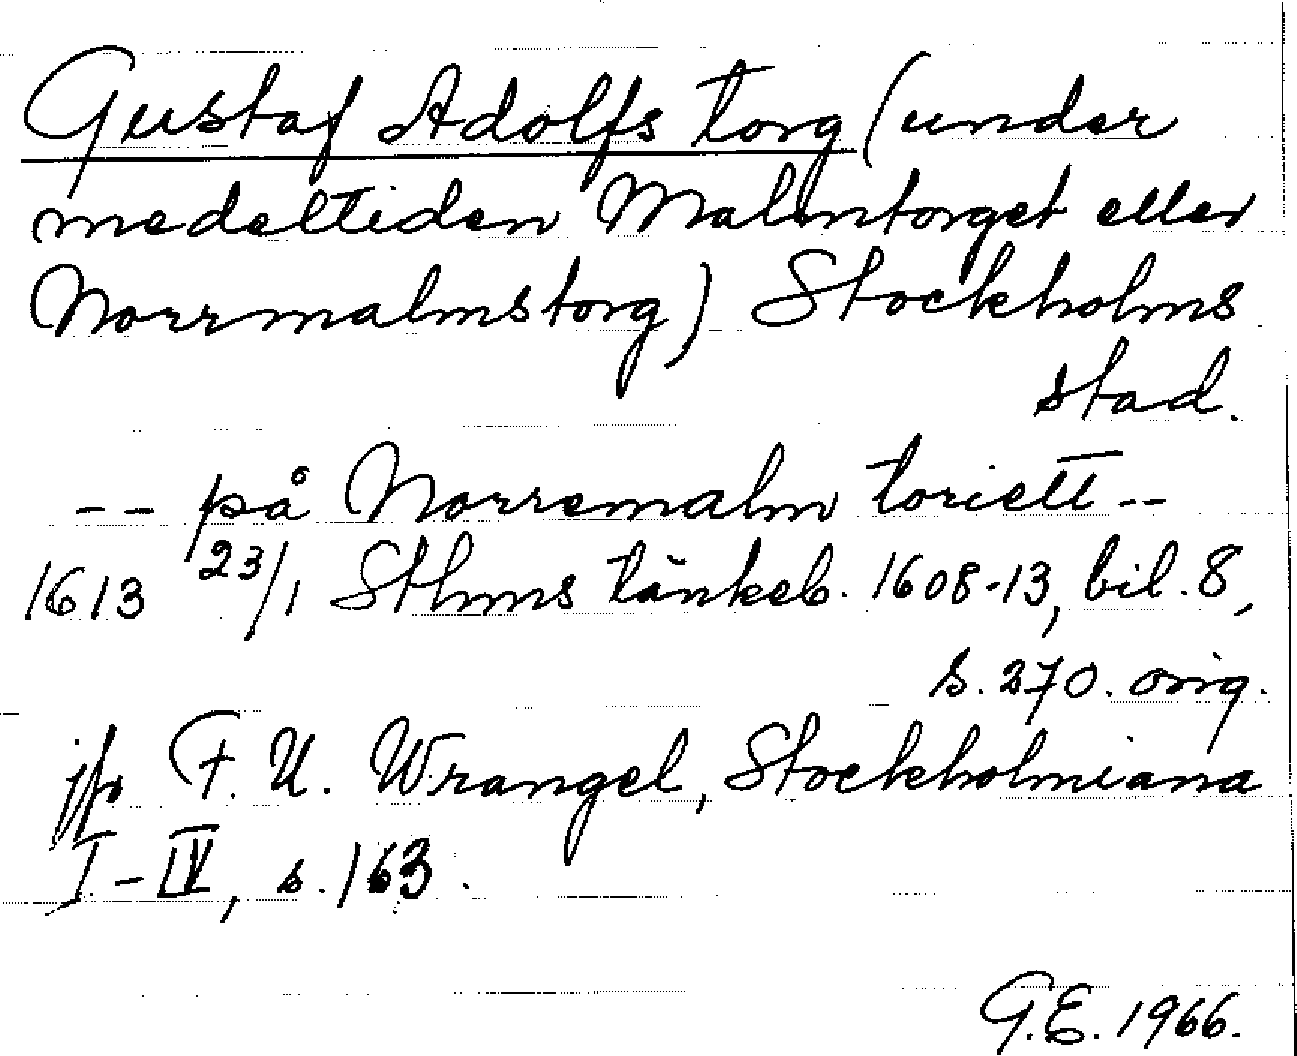 Gustaf Adolfs torg (under
medeltiden Malmtorget eller
Norrmalmstorg) Stockholms
stad.
-- på Norremalm toriett --
1613 23/1 Sthms tänkeb. 1608-13, bil. 8,
s. 270. orig.
jfr F. U. Wrangel, Stockholmiana
I-IV, s. 163.
G.E. 1966.